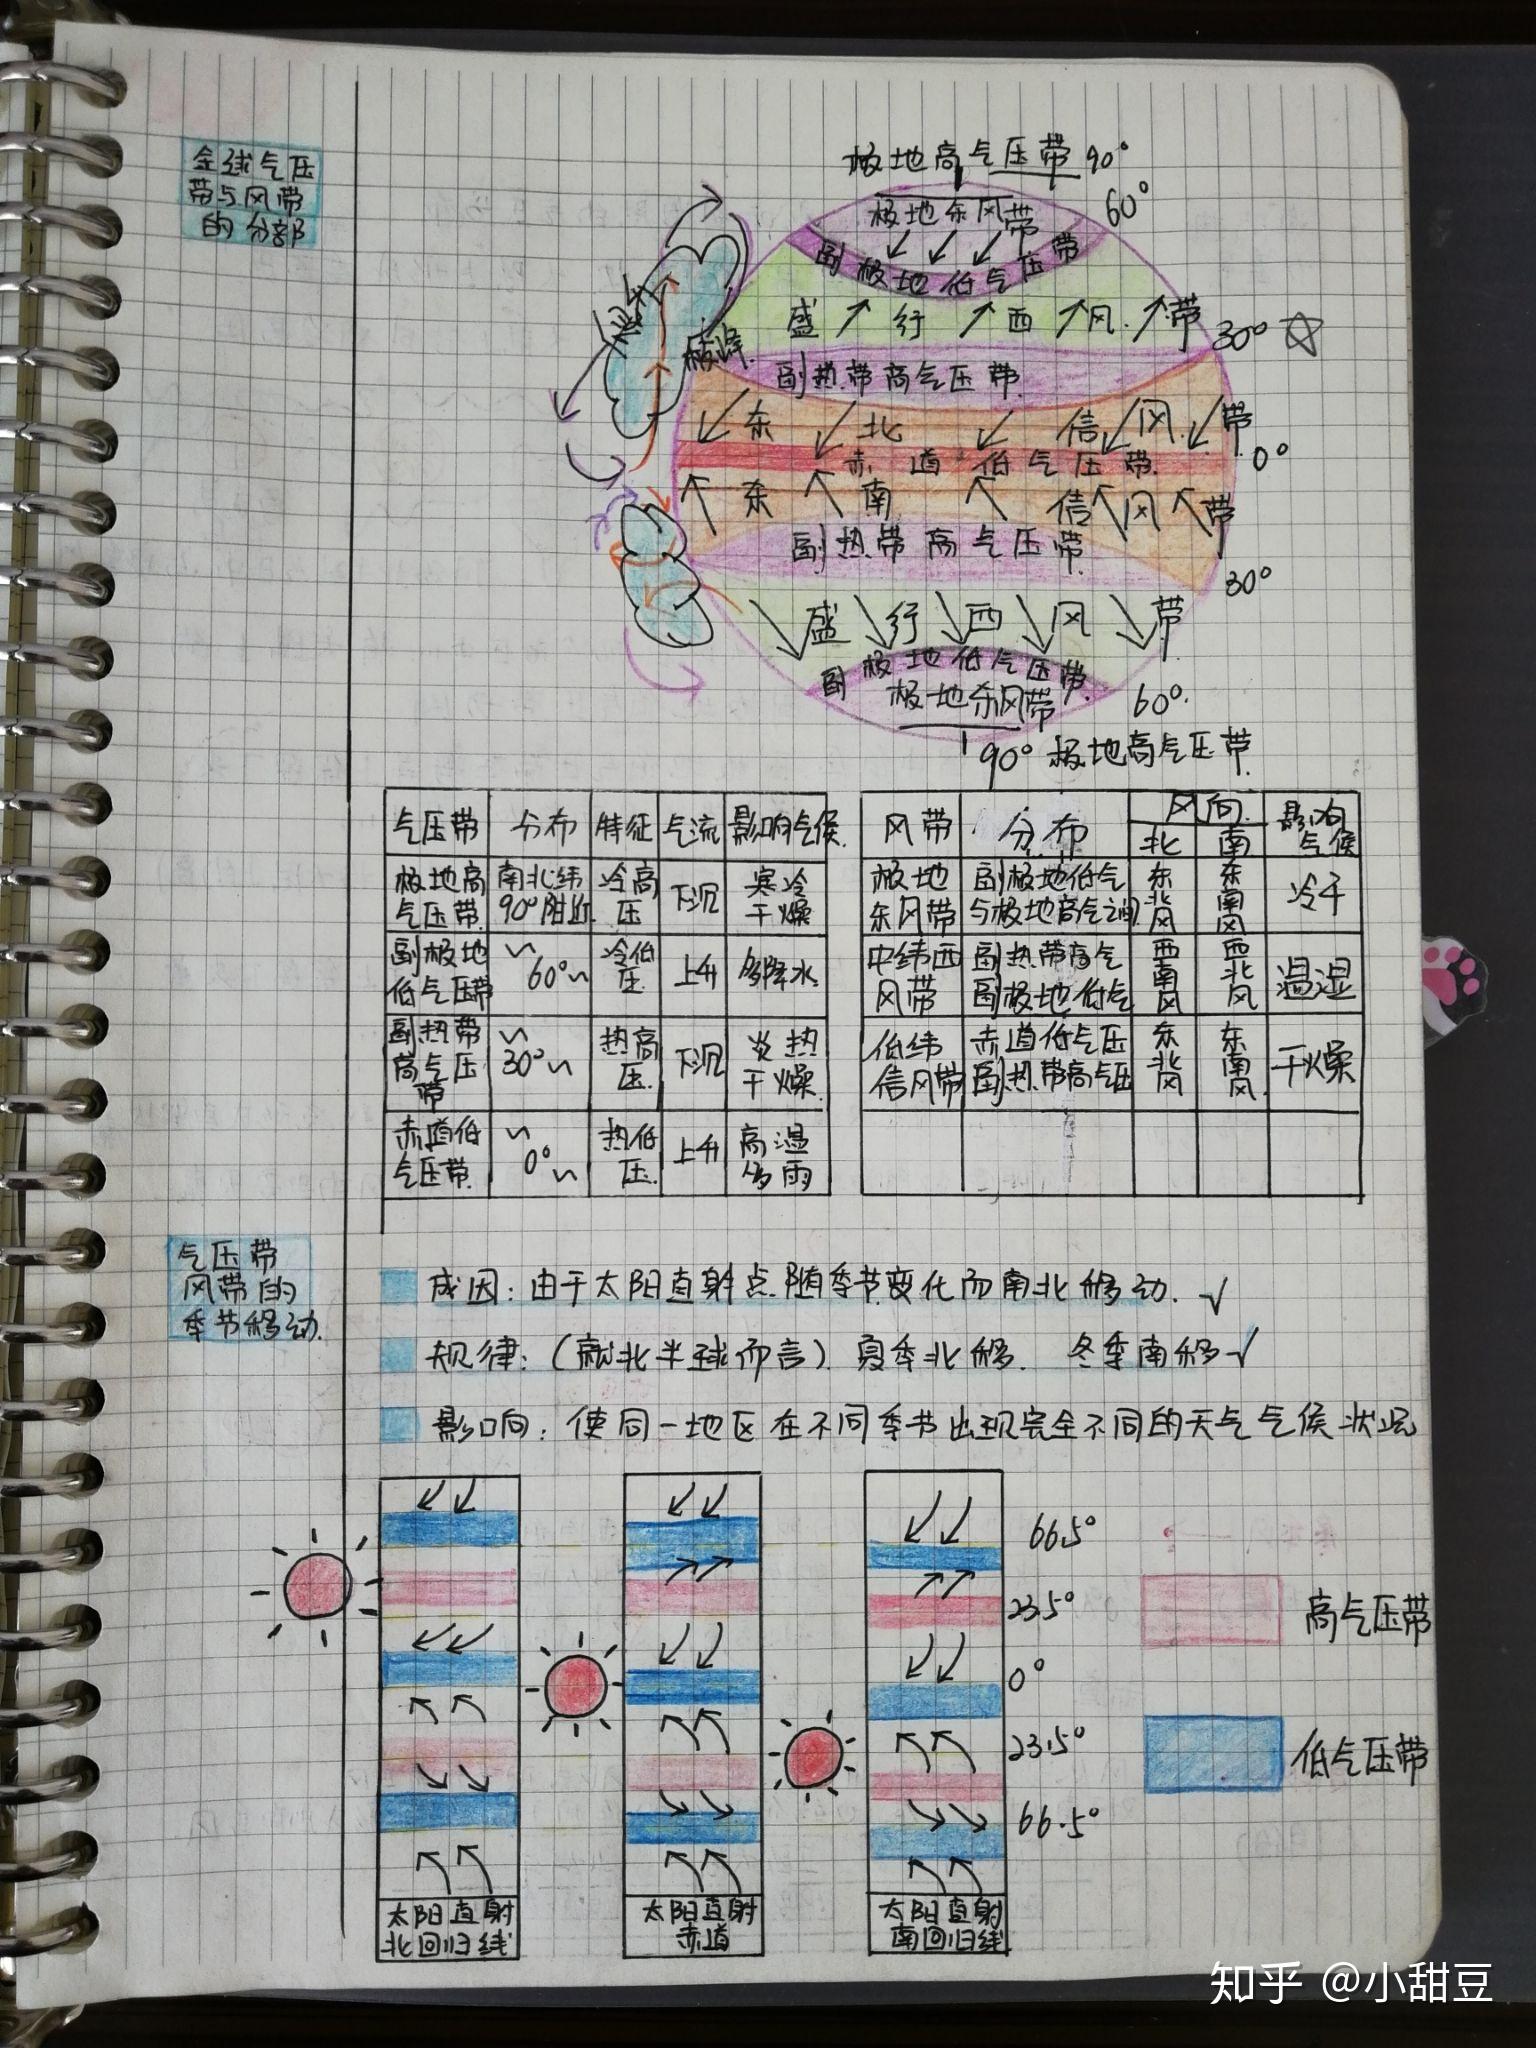 全球气压
带与风带
的分部
极地高气压带 90°
60°
极地东风带
副极地低气压带
盛行西风带
30°
副热带高气压带
东北信风带
赤道低气压带
0°
东南信风带
副热带高气压带
30°
盛行西风带
副极地低气压带
极地东风带
60°
90° 极地高气压带
气压带 分布 特征 气流 影响气候
极地高
气压带 南北纬
90°附近 冷高
压 下沉 寒冷
干燥
副极地
低气压带 ~
60°~ 冷低
压 上升 多降水
副热带
高气压
带 ~
30°~ 热高
压 下沉 炎热
干燥
赤道低
气压带 ~
0°~ 热低
压 上升 高温
多雨
风带 分布 风向 影响
气候
北 南
极地
东风带 副极地低气
与极地高气之间 东北风 东南风 冷干
中纬西
风带 副热带高气
副极地低气 西南风 西北风 温湿
低纬
信风带 赤道低气压
副热带高气压 东北风 东南风 干燥
气压带
风带的
季节移动.
成因:由于太阳直射点随季节变化而南北移动. √
规律:(就北半球而言) 夏季北移. 冬季南移√
影响:使同一地区在不同季节出现完全不同的天气气候状况
66.5°
23.5°
0°
23.5°
66.5°
高气压带
低气压带
太阳直射
北回归线
太阳直射
赤道
太阳直射
南回归线
知乎 @小甜豆